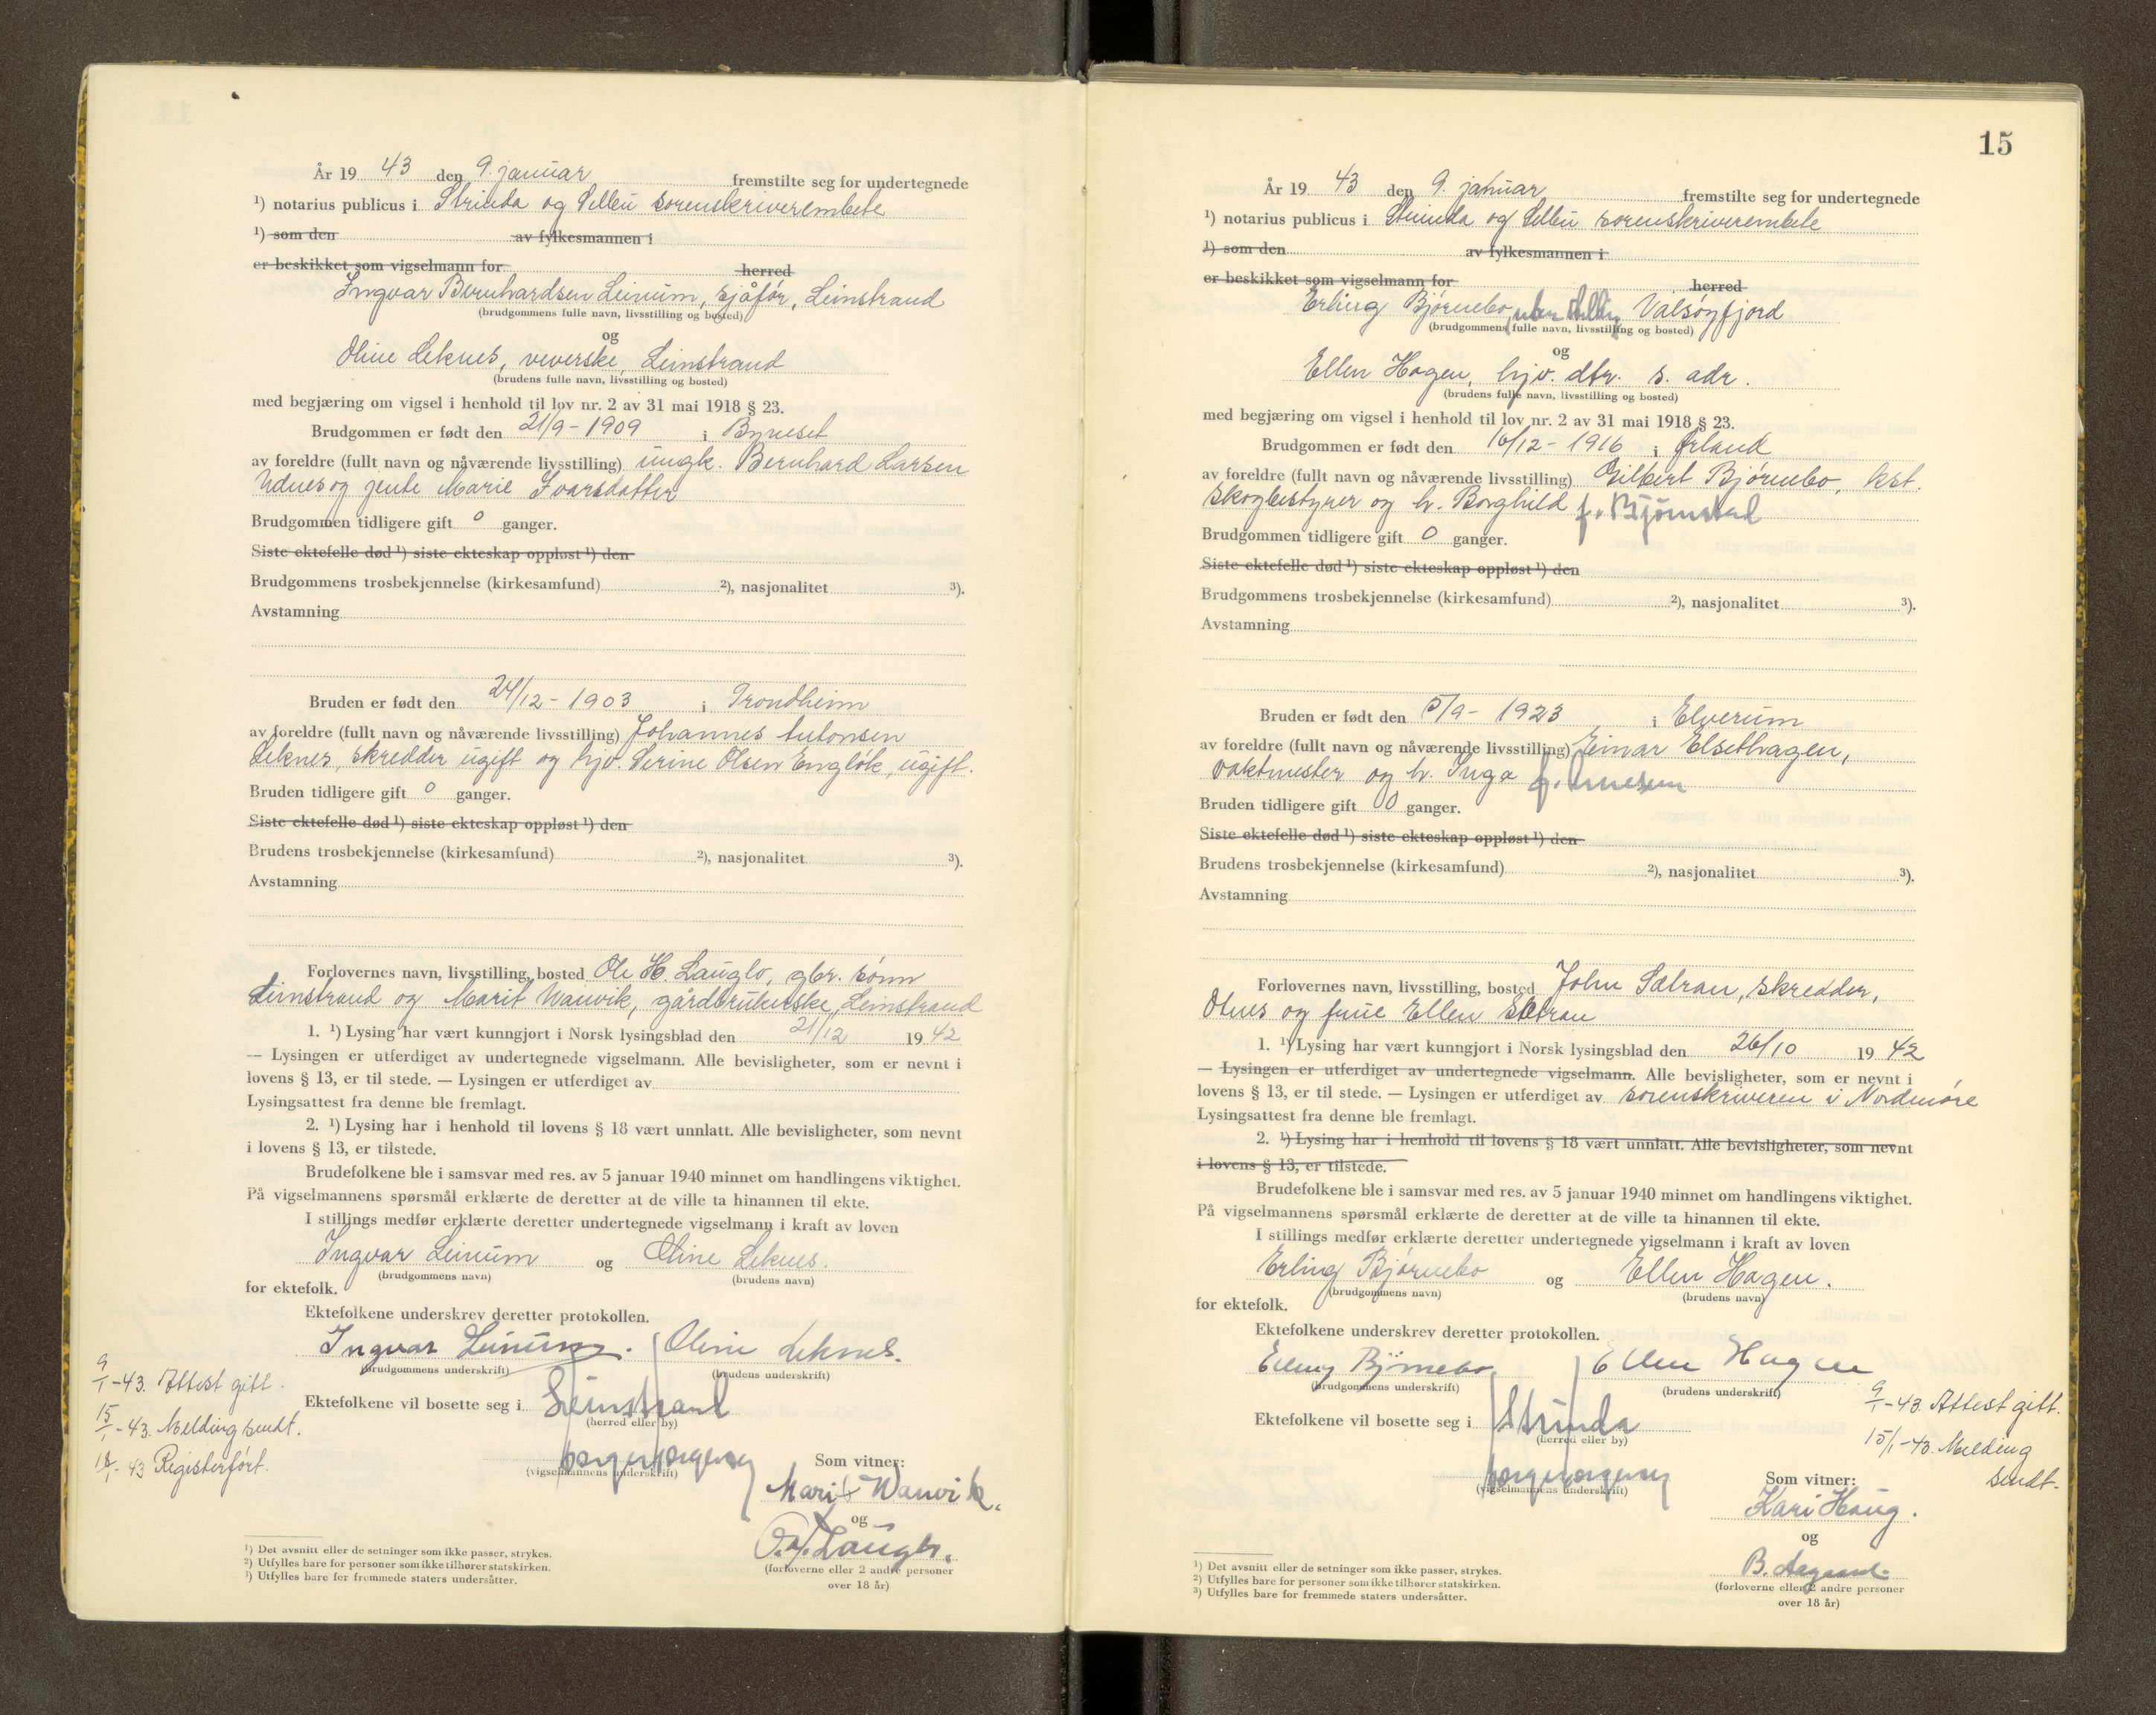 År 19 43 den 9. januar fremstilte seg for undertegnede
¹) notarius publicus i Strinda og Selbu sorenskriverembete
¹) som den av fylkesmannen i
er beskikket som vigselmann for herred
Ingvar Bernhardsen Leinum, sjåfør, Leinstrand
(brudgommens fulle navn, livsstilling og bosted)
og
Oline Leknes, veverske, Leinstrand
(brudens fulle navn, livsstilling og bosted)
med begjæring om vigsel i henhold til lov nr. 2 av 31 mai 1918 § 23.
Brudgommen er født den 21/9-1909 i Byneset
av foreldre (fullt navn og nåværende livsstilling) ungk. Bernhard Larsen
Udnes og jente Marie Ivarsdatter
Brudgommen tidligere gift 0 ganger.
Siste ektefelle død ¹) siste ekteskap oppløst ¹) den
Brudgommens trosbekjennelse (kirkesamfund) ²), nasjonalitet ³).
Avstamning
Bruden er født den 24/12-1903 i Trondheim
av foreldre (fullt navn og nåværende livsstilling) Johannes Antonsen
Leknes, skredder ugift og hjv. Serine Olsen Engløk, ugift.
Bruden tidligere gift 0 ganger.
Siste ektefelle død ¹) siste ekteskap oppløst ¹) den
Brudens trosbekjennelse (kirkesamfund) ²), nasjonalitet ³).
Avstamning
Forlovernes navn, livsstilling, bosted Ole H. Lauglo, gbr. sønn
Leinstrand og Marit Wanvik, gårdbrukerske, Leinstrand
1. ¹) Lysing har vært kunngjort i Norsk lysingsblad den 21/12 19 42
— Lysingen er utferdiget av undertegnede vigselmann. Alle bevisligheter, som er nevnt i
lovens § 13, er til stede. — Lysingen er utferdiget av
Lysingsattest fra denne ble fremlagt.
2. ¹) Lysing har i henhold til lovens § 18 vært unnlatt. Alle bevisligheter, som nevnt
i lovens § 13, er tilstede.
Brudefolkene ble i samsvar med res. av 5 januar 1940 minnet om handlingens viktighet.
På vigselmannens spørsmål erklærte de deretter at de ville ta hinannen til ekte.
I stillings medfør erklærte deretter undertegnede vigselmann i kraft av loven
Ingvar Leinum og Oline Leknes.
(brudgommens navn) (brudens navn)
for ektefolk.
Ektefolkene underskrev deretter protokollen.
Ingvar Leinum. Oline Leknes.
(brudgommens underskrift) (brudens underskrift)
9/1-43. Attest gitt.
Ektefolkene vil bosette seg i Leinstrand
(herred eller by)
15/1-43. Melding sendt.
18/1-43 Registerført.
(vigselmannens underskrift)
Som vitner:
Marit Wanvik.
og
O. H. Lauglo.
(forloverne eller 2 andre personer
over 18 år)
¹) Det avsnitt eller de setninger som ikke passer, strykes.
²) Utfylles bare for personer som ikke tilhører statskirken.
³) Utfylles bare for fremmede staters undersåtter.
15
År 19 43 den 9. januar fremstilte seg for undertegnede
¹) notarius publicus i Strinda og Selbu sorenskriverembete
¹) som den av fylkesmannen i
er beskikket som vigselmann for herred
Erling Bjørnebo, uten stilling Valsøyfjord
(brudgommens fulle navn, livsstilling og bosted)
og
Ellen Hagen, hjv. dtr. s. adr.
(brudens fulle navn, livsstilling og bosted)
med begjæring om vigsel i henhold til lov nr. 2 av 31 mai 1918 § 23.
Brudgommen er født den 16/12-1916 i Ørland
av foreldre (fullt navn og nåværende livsstilling) Gilbert Bjørnebo, kst.
skogbestyrer og h. Borghild f. Bjørnstad
Brudgommen tidligere gift 0 ganger.
Siste ektefelle død ¹) siste ekteskap oppløst ¹) den
Brudgommens trosbekjennelse (kirkesamfund) ²), nasjonalitet ³).
Avstamning
Bruden er født den 5/9-1923 i Elverum
av foreldre (fullt navn og nåværende livsstilling) Einar Elsethagen,
vaktmester og h. Inga f. Arnesen
Bruden tidligere gift 0 ganger.
Siste ektefelle død ¹) siste ekteskap oppløst ¹) den
Brudens trosbekjennelse (kirkesamfund) ²), nasjonalitet ³).
Avstamning
Forlovernes navn, livsstilling, bosted John Sætran, skredder,
og frue Ellen Sætran
1. ¹) Lysing har vært kunngjort i Norsk lysingsblad den 26/10 19 42
— Lysingen er utferdiget av undertegnede vigselmann. Alle bevisligheter, som er nevnt i
lovens § 13, er til stede. — Lysingen er utferdiget av sorenskriveren i Nordmøre
Lysingsattest fra denne ble fremlagt.
2. ¹) Lysing har i henhold til lovens § 18 vært unnlatt. Alle bevisligheter, som nevnt
i lovens § 13, er tilstede.
Brudefolkene ble i samsvar med res. av 5 januar 1940 minnet om handlingens viktighet.
På vigselmannens spørsmål erklærte de deretter at de ville ta hinannen til ekte.
I stillings medfør erklærte deretter undertegnede vigselmann i kraft av loven
Erling Bjørnebo og Ellen Hagen.
(brudgommens navn) (brudens navn)
for ektefolk.
Ektefolkene underskrev deretter protokollen.
Erling Bjørnebo Ellen Hagen
(brudgommens underskrift) (brudens underskrift)
9/1-43. Attest gitt.
Ektefolkene vil bosette seg i Strinda
(herred eller by)
15/1-43. Melding
sendt.
(vigselmannens underskrift)
Som vitner:
Kari Haug.
og
B. Aagaard
(forloverne eller 2 andre personer
over 18 år)
¹) Det avsnitt eller de setninger som ikke passer, strykes.
²) Utfylles bare for personer som ikke tilhører statskirken.
³) Utfylles bare for fremmede staters undersåtter.